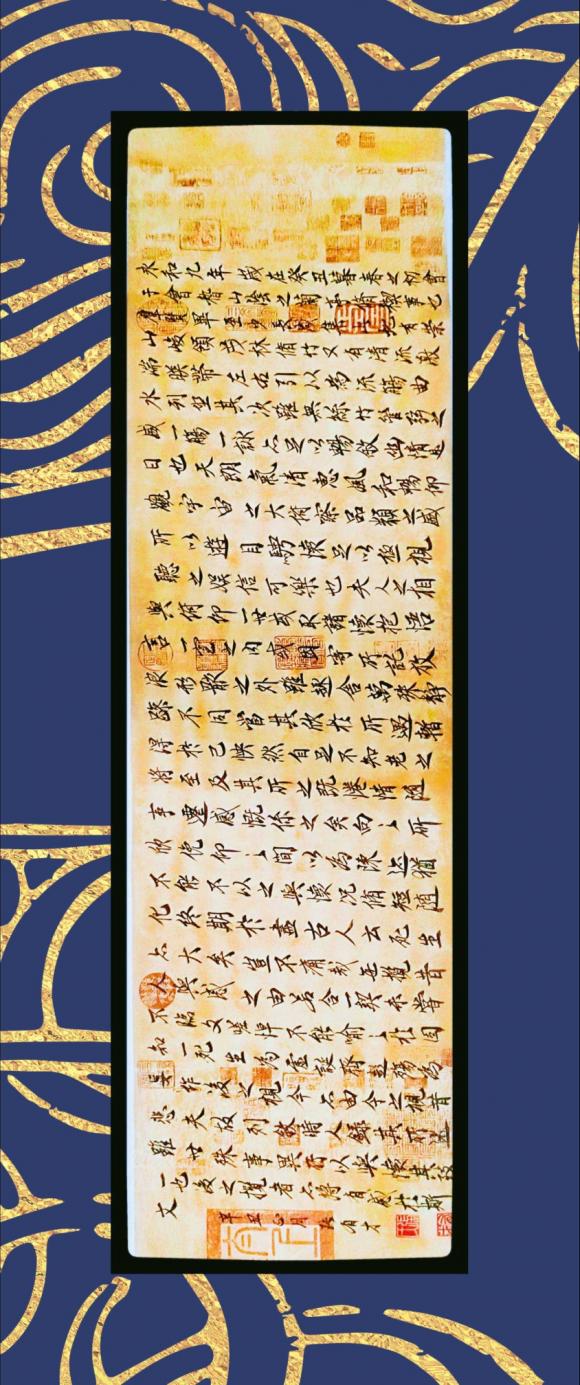 永和九年歲在癸丑暮春之初會
于會稽山陰之蘭亭脩禊事也
群賢畢至少長咸集此地有崇
山峻領茂林脩竹又有清流激
湍暎帶左右引以為流觴曲
水列坐其次雖無絲竹管弦之
盛一觴一詠亦足以暢敘幽情是
日也天朗氣清惠風和暢仰
觀宇宙之大俯察品類之盛
所以遊目騁懷足以極視
聽之娛信可樂也夫人之相
與俯仰一世或取諸懷抱悟
言一室之內或因寄所託放
浪形骸之外雖趣舍萬殊靜
躁不同當其欣於所遇暫
得於己怏然自足不知老之
將至及其所之既惓情隨
事遷感慨係之矣向之所
欣俛仰之間以為陳迹猶
不能不以之興懷況脩短隨
化終期於盡古人云死生
亦大矣豈不痛哉每攬昔
人興感之由若合一契未嘗
不臨文嗟悼不能喻之於懷固
知一死生為虛誕齊彭殤為
妄作後之視今亦由今之視昔
悲夫故列敘時人錄其所述
雖世殊事異所以興懷其致
一也後之攬者亦將有感於斯
文
辛丑